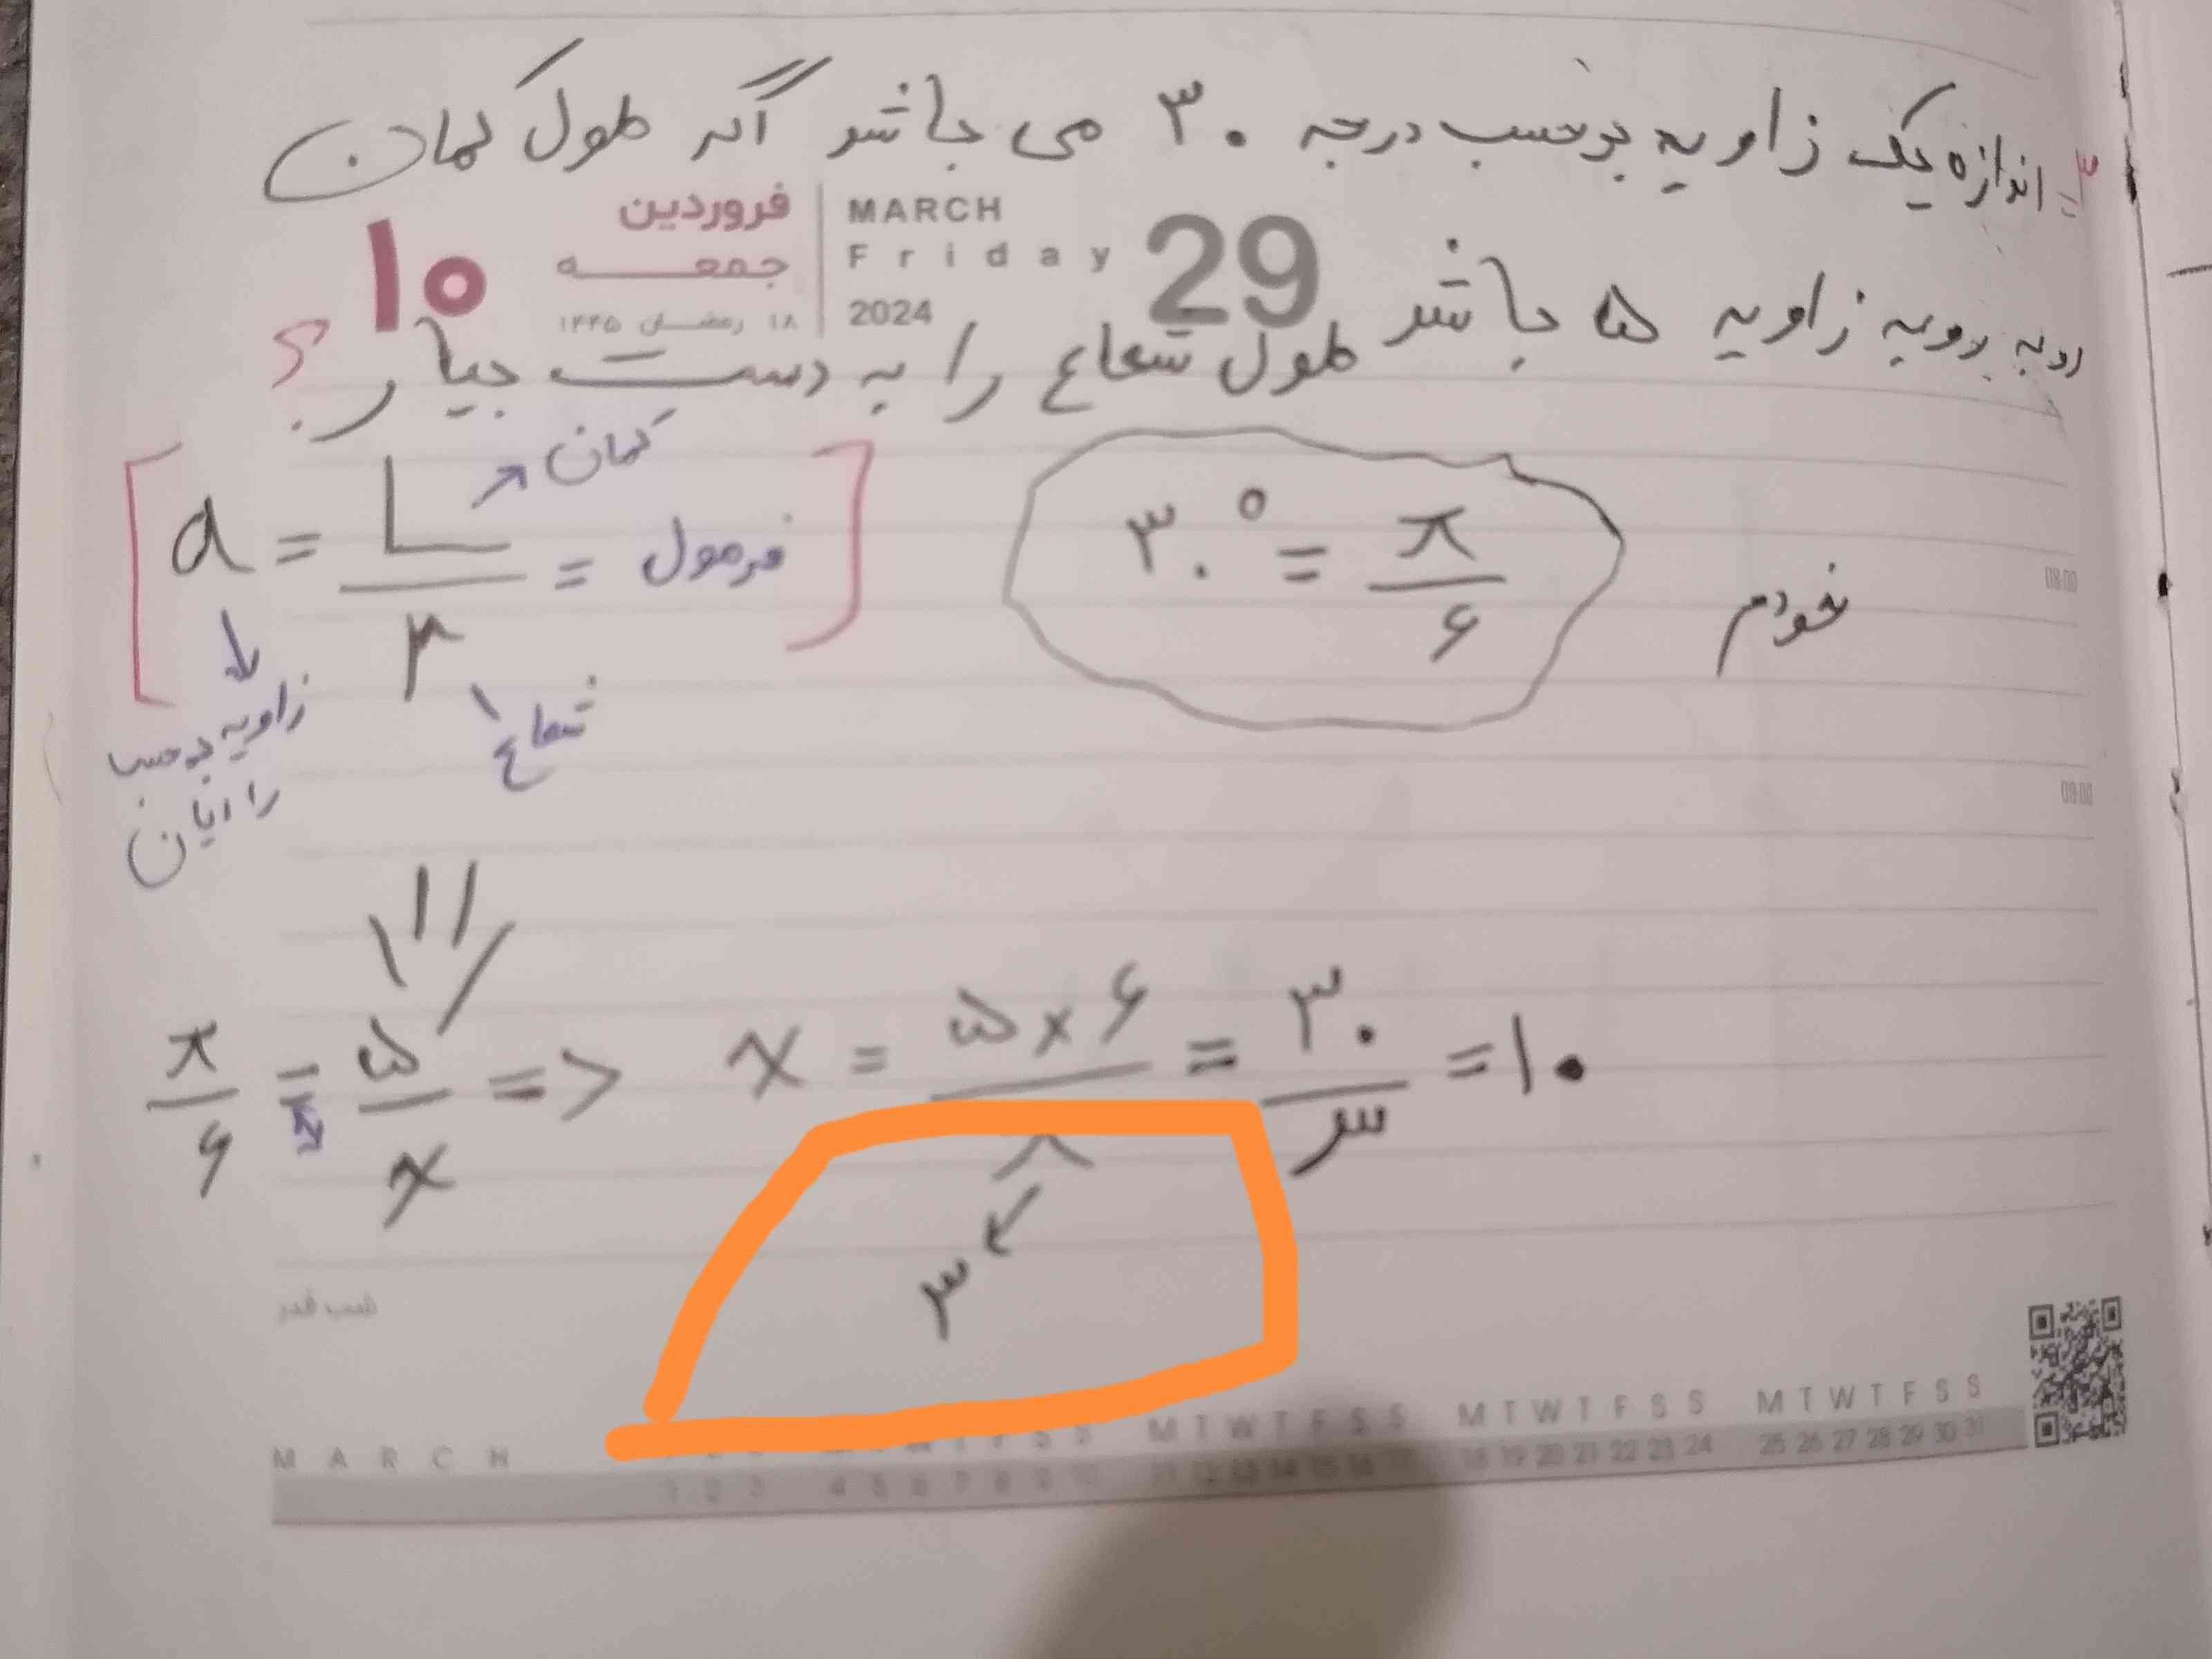 ۳= اندازه یک زاویه برحسب درجه ۳۰ می باشد اگه طول کمان
فروردین
جمعه
۱۸ رمضان ۱۴۴۵
۱۰
MARCH
Friday
2024
29
روبه رویه زاویه ۵ باشد طول شعاع را به دست بیار؟
a = L/r = فرمول
کمان
شعاع
زاویه برحسب
رادیان
۳۰° = π/۶
خودم
08:00
09:00
π/۶ = ۵/x => x = ۵×۶/π = ۳۰/۳ = ۱۰
۳
شب قدر
MARCH
M T W T F S S M T W T F S S M T W T F S S
1 2 3 4 5 6 7 8 9 10 11 12 13 14 15 16 17 18 19 20 21 22 23 24 25 26 27 28 29 30 31